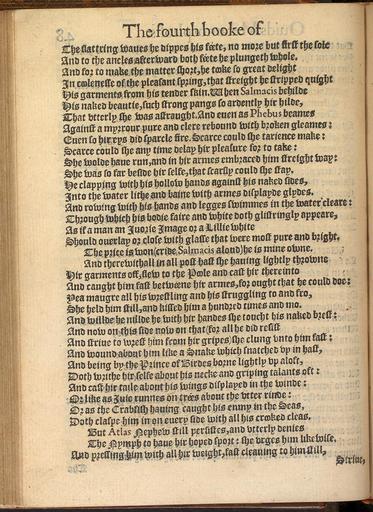 The fourth booke of
The flattring waues he dippes his feete, no more but first the sole
And to the ancles afterward both feete he plungeth whole.
And for to make the matter short, he tooke so great delight
In coolenesse of the pleasant spring, that streight he stripped quight
His garments from his tender skin. When Salmacis behilde
His naked beautie, such strong pangs so ardently hir hilde,
That vtterly she was astraught. And euen as Phebus beames
Against a myrrour pure and clere rebound with broken gleames:
Euen so hir eys did sparcle fire. Scarce could she tarience make:
Scarce could she any time delay hir pleasure for to take:
She wolde haue run, and in hir armes embraced him streight way:
She was so far beside hir selfe, that scarsly could she stay.
He clapping with his hollow hands against his naked sides,
Into the water lithe and baine with armes displayde glydes.
And rowing with his hands and legges swimmes in the water cleare:
Through which his bodie faire and white doth glistringly appeare,
As if a man an Iuorie Image or a Lillie white
Should ouerlay or close with glasse that were most pure and bright.
The price is won (cride Salmacis aloud) he is mine owne.
And therewithall in all post hast she hauing lightly throwne
Hir garments off, flew to the Poole and cast hir thereinto
And caught him fast betweene hir armes, for ought that he could doe:
Yea maugre all his wrestling and his struggling to and fro,
She held him still, and kissed him a hundred times and mo.
And willde he nillde he with hir handes she toucht his naked brest:
And now on this side now on that (for all he did resist
And striue to wrest him from hir gripes) she clung vnto him fast:
And wound about him like a Snake which snatched vp in hast,
And being by the Prince of Birdes borne lightly vp aloft,
Doth writhe hir selfe about his necke and griping talants oft:
And cast hir taile about his wings displayed in the winde:
Or like as Iuie runnes on trees about the vtter rinde:
Or as the Crabfish hauing caught his enmy in the Seas,
Doth claspe him in on euery side with all his crooked cleas.
But Atlas Nephew still persistes, and vtterly denies
The Nymph to haue hir hoped sport: she vrges him like wise.
And pressing him with all hir weight, fast cleauing to him still,
Striue,